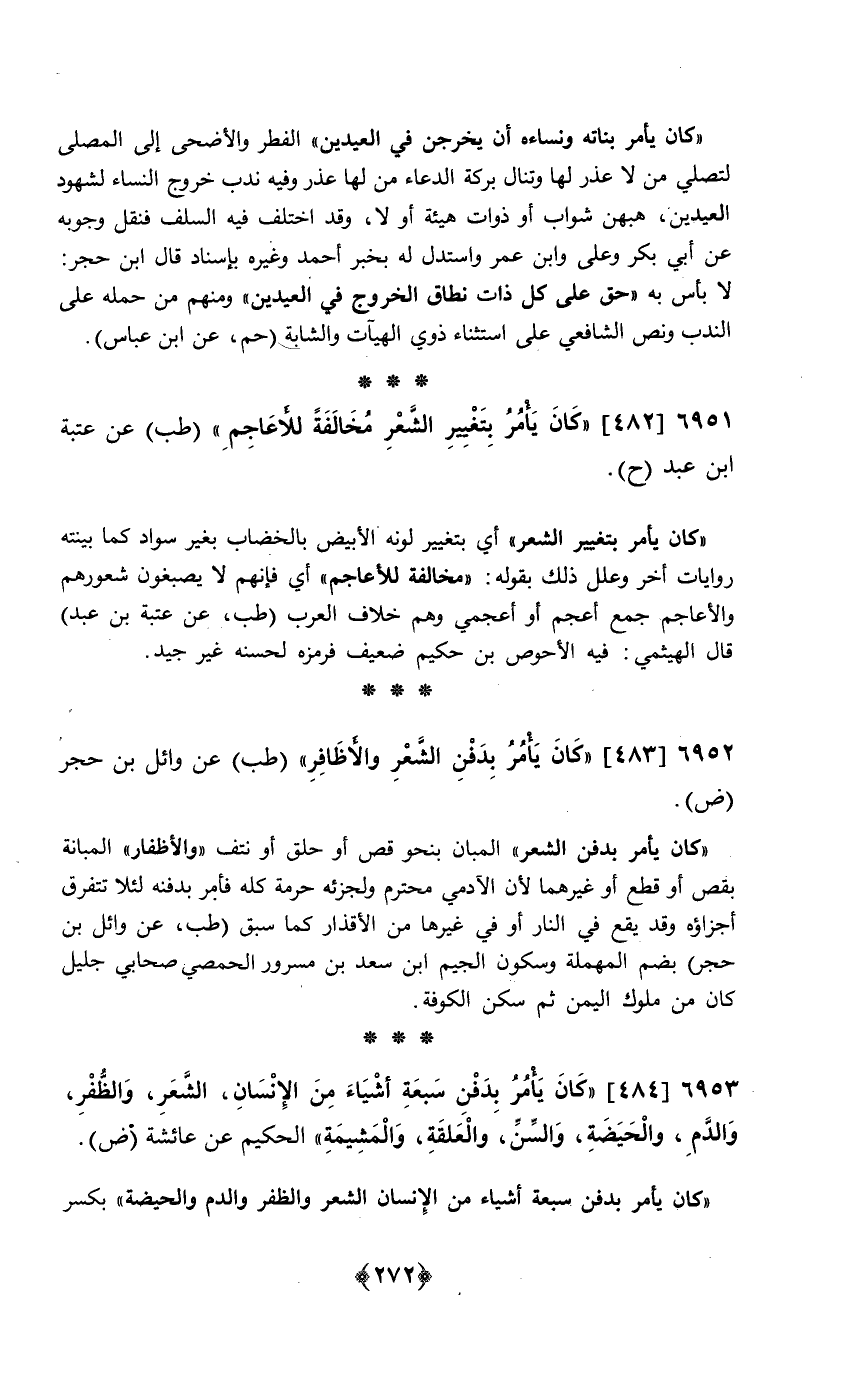 «كان يأمر بناته ونساءه أن يخرجن في العيدين» الفطر والأضحى إلى المصلى
لتصلي من لا عذر لها وتنال بركة الدعاء من لها عذر وفيه ندب خروج النساء لشهود
العيدين، هبهن شواب أو ذوات هيئة أو لا، وقد اختلف فيه السلف فنقل وجوبه
عن أبي بكر وعلى وابن عمر واستدل له بخبر أحمد وغيره بإسناد قال ابن حجر:
لا بأس به «حق على كل ذات نطاق الخروج في العيدين» ومنهم من حمله على
الندب ونص الشافعي على استثناء ذوي الهيآت والشابة (حم، عن ابن عباس).
* * *
٦٩٥١ [٤٨٢] «كَانَ يَأْمُرُ بِتَغْيِيرِ الشَّعْرِ مُخَالَفَةً للأَعَاجِمِ» (طب) عن عتبة
ابن عبد (ح).
«كان يأمر بتغيير الشعر» أي بتغيير لونه الأبيض بالخضاب بغير سواد كما بينته
روايات أخر وعلل ذلك بقوله: «مخالفة للأعاجم» أي فإنهم لا يصبغون شعورهم
والأعاجم جمع أعجم أو أعجمي وهم خلاف العرب (طب، عن عتبة بن عبد)
قال الهيثمي: فيه الأحوص بن حكيم ضعيف فرمزه لحسنه غير جيد.
* * *
٦٩٥٢ [٤٨٣] «كَانَ يَأْمُرُ بِدَفْنِ الشَّعْرِ والأَظَافِرِ» (طب) عن وائل بن حجر
(ض).
«كان يأمر بدفن الشعر» المبان بنحو قص أو حلق أو نتف «والأظفار» المبانة
بقص أو قطع أو غيرهما لأن الآدمي محترم ولجزئه حرمة كله فأمر بدفنه لئلا تتفرق
أجزاؤه وقد يقع في النار أو في غيرها من الأقذار كما سبق (طب، عن وائل بن
حجر) بضم المهملة وسكون الجيم ابن سعد بن مسرور الحمصي صحابي جليل
كان من ملوك اليمن ثم سكن الكوفة.
* * *
٦٩٥٣ [٤٨٤] «كَانَ يَأْمُرُ بِدَفْنِ سَبعَةِ أَشْيَاءَ مِنَ الإِنْسَانِ، الشَّعَرِ، وَالظُّفْرِ،
وَالدَّمِ، والْحَيَضَةِ، وَالسِّنِّ، والْعَلقَةِ، وَالْمَشِيمَةِ» الحكيم عن عائشة (ض).
«كان يأمر بدفن سبعة أشياء من الإنسان الشعر والظفر والدم والحيضة» بكسر
﴿٢٧٢﴾